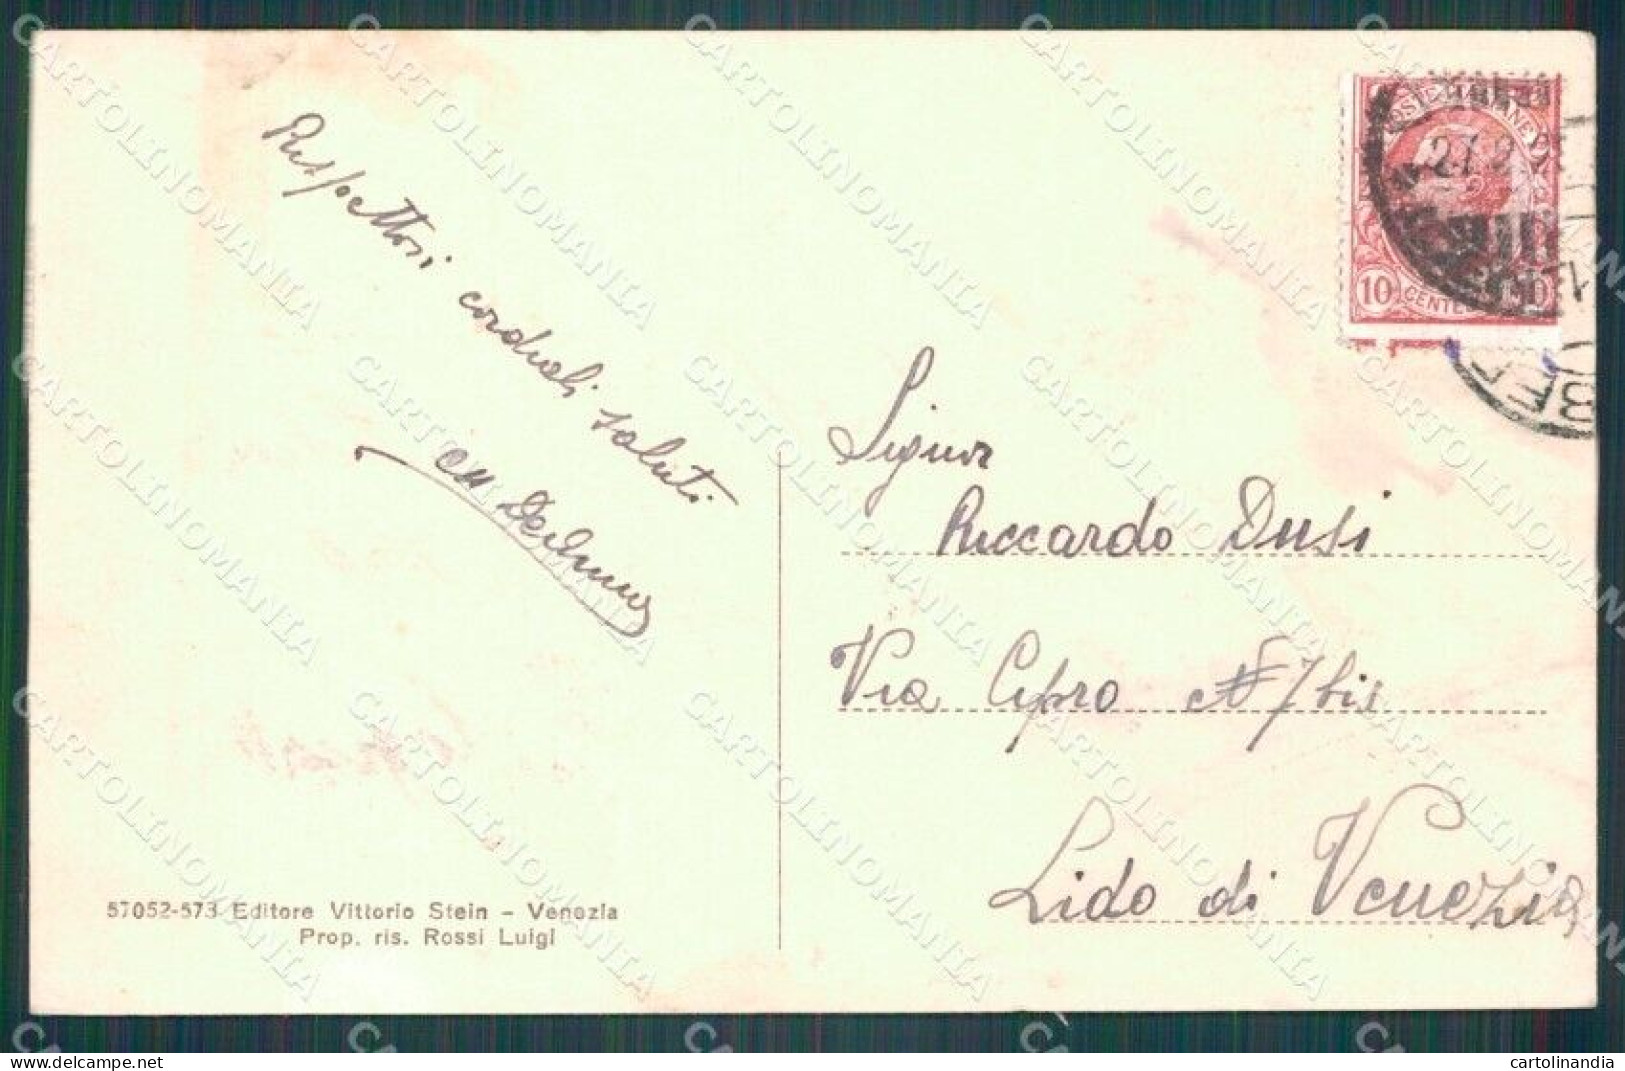 Rispettosi cordiali saluti
Signor
Riccardo Dusi
Via Cipro N 7 bis
Lido di Venezia
10
CENTE
57052-573 Editore Vittorio Stein - Venezia
Prop. ris. Rossi Luigi
CARTOLINOMANIA
delcampe.net
cartolinandia